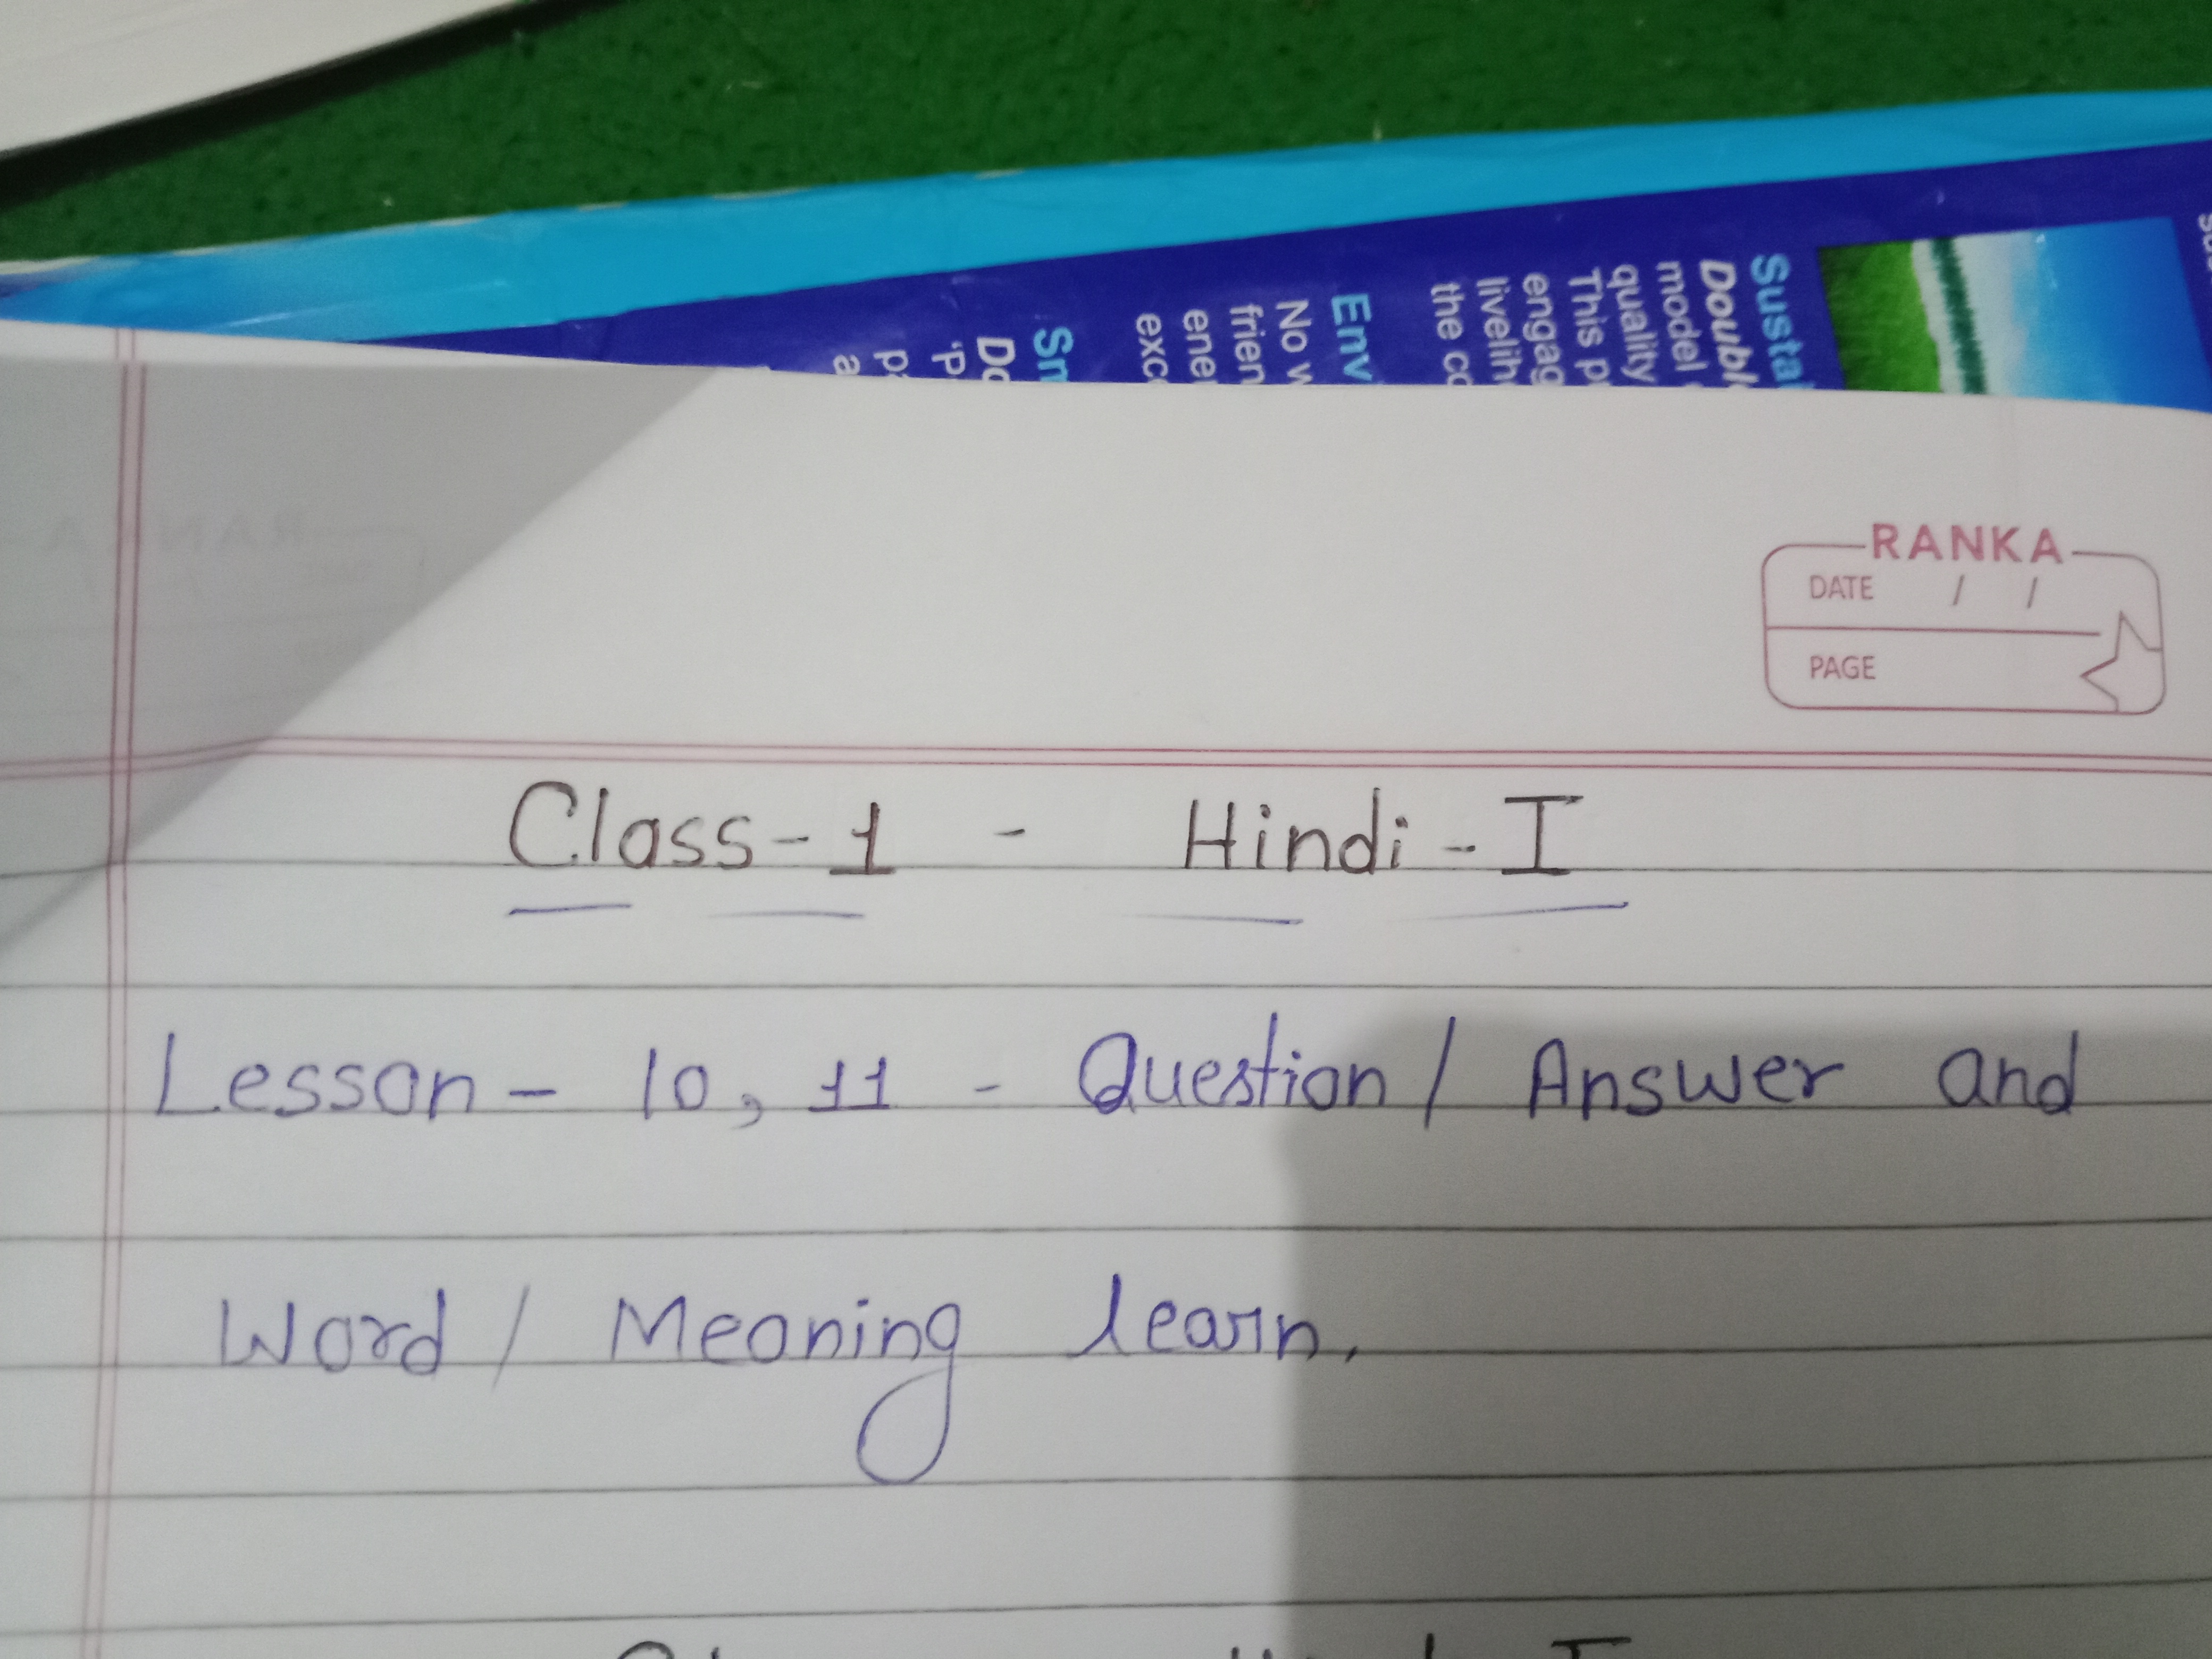 Sustai
Doubl
model
quality
This p
engag
livelih
the co
Env
No w
frien
ene
exc
Sm
Do
'P
pa
a
RANKA
DATE / /
PAGE
Class-1 - Hindi-I
Lesson- 10, 11 - Question/ Answer and
Word/ Meaning learn.